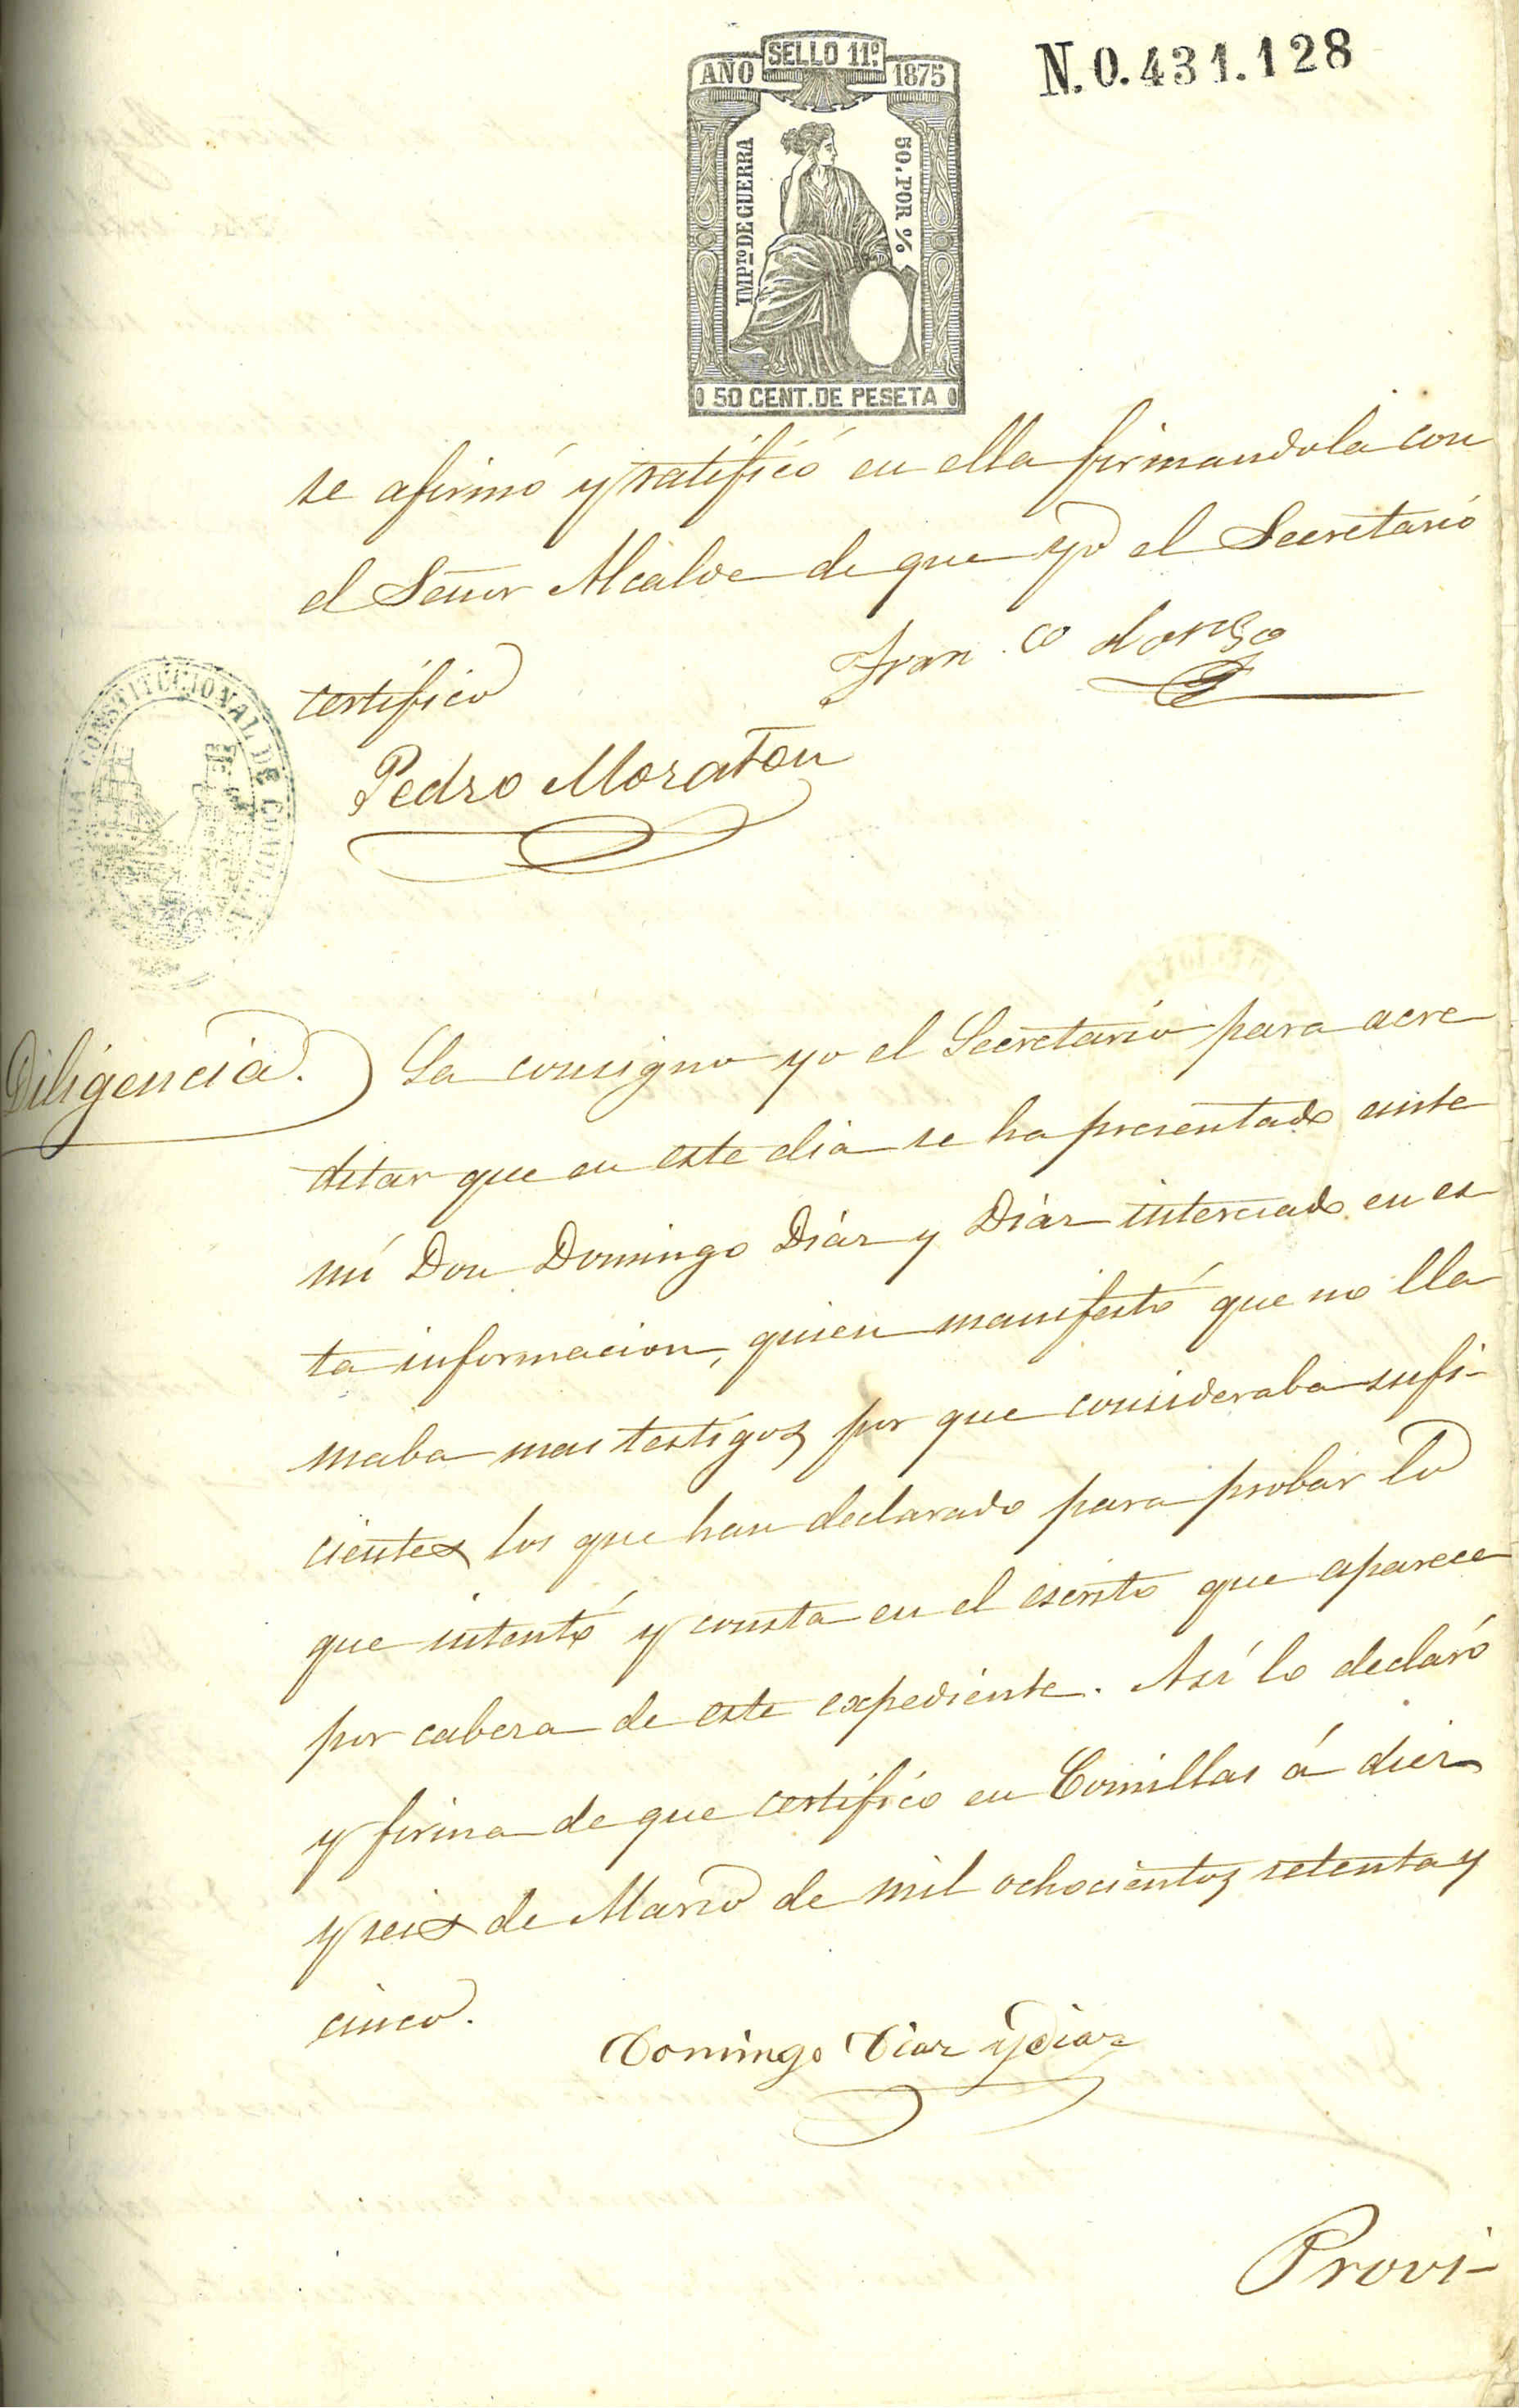 N.0.431.128
AÑO SELLO 11º 1875
IMPTO DE GUERRA
50.POR %
50 CENT. DE PESETA
se afirmó y ratificó en ella firmandola con
el Señor Alcalde de que yo el Secretario
certifico
Fran.co Alonso
Pedro Moraton
CONSTITUCIONAL DE
Diligencia. La consigno yo el Secretario para acre
ditar que en este dia se ha presentado ante
mi Don Domingo Diáz y Diáz interesado en es
ta informacion, quien manifestó que no lla
maba mas testigos por que consideraba sufi-
cientes los que han declarado para probar lo
que intentó y consta en el escrito que aparece
por cabeza de este expediente. Así lo declaró
y firma de que certifico en Comillas á diez
y seis de Marzo de mil ochocientos setenta y
cinco.
Domingo Diaz y Diaz
Provi-